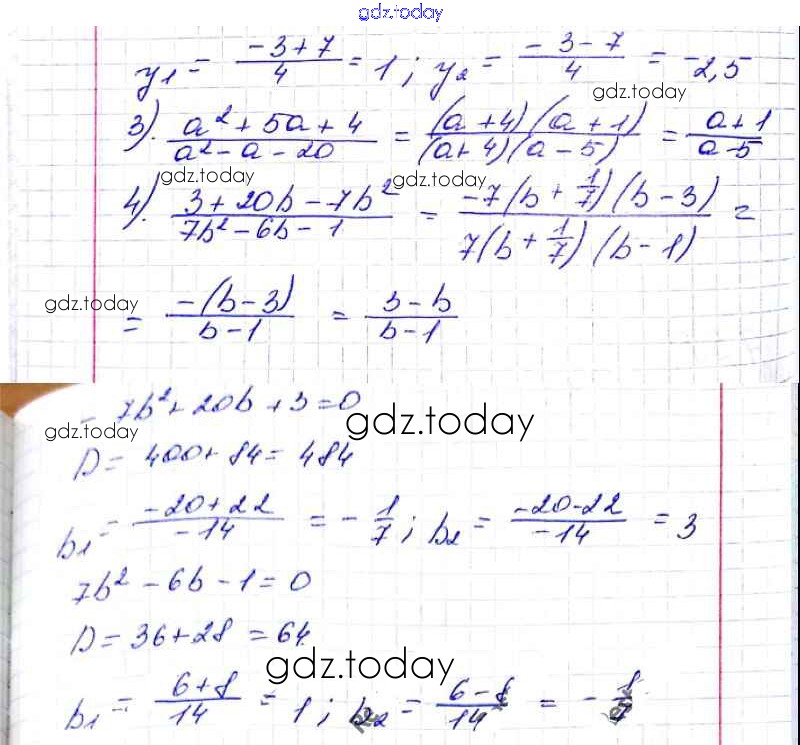 gdz.today
y₁ = (-3+7)/4 = 1; y₂ = (-3-7)/4 = -2,5
gdz.today
3). (a²+5a+4)/(a²-a-20) = ((a+4)(a+1))/((a+4)(a-5)) = (a+1)/(a-5)
gdz.today gdz.today
4). (3+20b-7b²)/(7b²-6b-1) = (-7(b+1/7)(b-3))/(7(b+1/7)(b-1)) =
gdz.today
= (-(b-3))/(b-1) = (3-b)/(b-1)
-7b²+20b+3=0
gdz.today
gdz.today
D = 400+84=484
b₁ = (-20+22)/(-14) = -1/7; b₂ = (-20-22)/(-14) = 3
7b²-6b-1=0
D=36+28=64
gdz.today
b₁ = (6+8)/14 = 1; b₂ = (6-8)/14 = -1/7